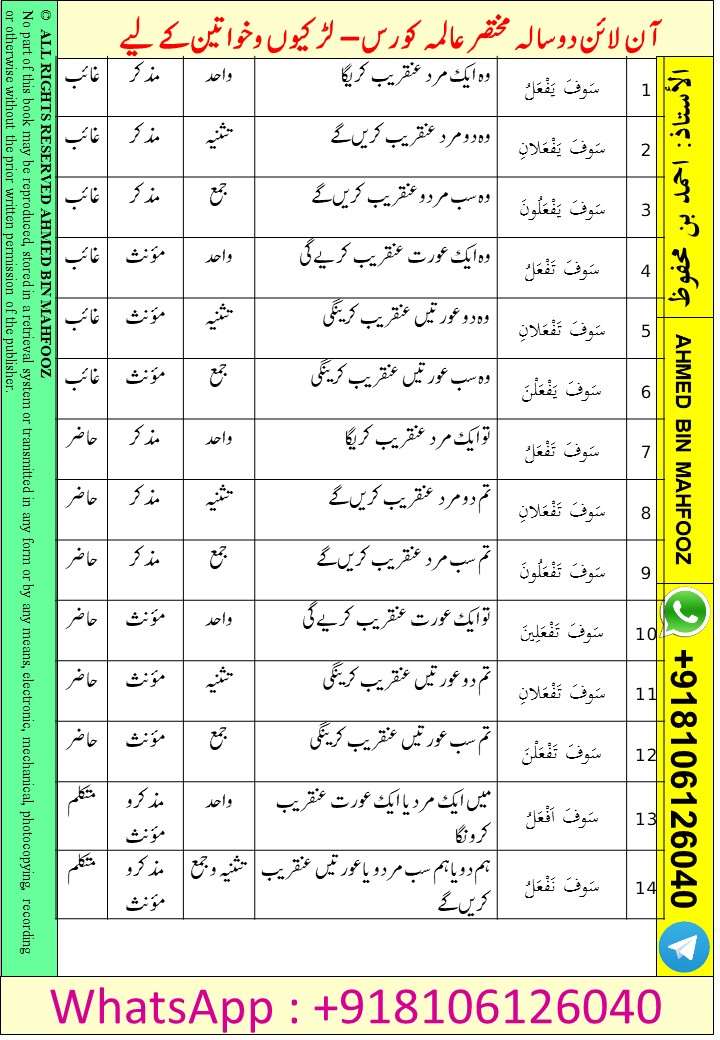 آن لائن دوسالہ مختصر عالمہ کورس– لڑکیوں وخواتین کے لیے
1 سَوفَ يَفْعَلُ وہ ایک مرد عنقریب کریگا واحد مذکر غائب
2 سَوفَ يَفْعَلانِ وہ دو مرد عنقریب کریں گے تثنیہ مذکر غائب
3 سَوفَ يَفْعَلُونَ وہ سب مردو عنقریب کریں گے جمع مذکر غائب
4 سَوفَ تَفْعَلُ وہ ایک عورت عنقریب کریے گی واحد مؤنث غائب
5 سَوفَ تَفْعَلانِ وہ دو عورتیں عنقریب کرینگی تثنیہ مؤنث غائب
6 سَوفَ يَفْعَلْنَ وہ سب عورتیں عنقریب کرینگی جمع مؤنث غائب
7 سَوفَ تَفْعَلُ تو ایک مرد عنقریب کریگا واحد مذکر حاضر
8 سَوفَ تَفْعَلانِ تم دو مرد عنقریب کریں گے تثنیہ مذکر حاضر
9 سَوفَ تَفْعَلُونَ تم سب مرد عنقریب کریں گے جمع مذکر حاضر
10 سَوفَ تَفْعَلِينَ تو ایک عورت عنقریب کریے گی واحد مؤنث حاضر
11 سَوفَ تَفْعَلانِ تم دو عورتیں عنقریب کرینگی تثنیہ مؤنث حاضر
12 سَوفَ تَفْعَلْنَ تم سب عورتیں عنقریب کرینگی جمع مؤنث حاضر
13 سَوفَ اَفْعَلُ میں ایک مرد یا ایک عورت عنقریب واحد مذکر و متکلم
کرونگا مؤنث
14 سَوفَ نَفْعَلُ ہم دو یا ہم سب مرد و یا عورتیں عنقریب تثنیہ وجمع مذکر و متکلم
کریں گے مؤنث
الأستاذ: احمد بن محفوظ
AHMED BIN MAHFOOZ
+918106126040
© ALL RIGHTS RESERVED AHMED BIN MAHFOOZ
No part of this book may be reproduced, stored in a retrieval system or transmitted in any form or by any means, electronic, mechanical, photocopying, recording
or otherwise without the prior written permission of the publisher.
WhatsApp : +918106126040